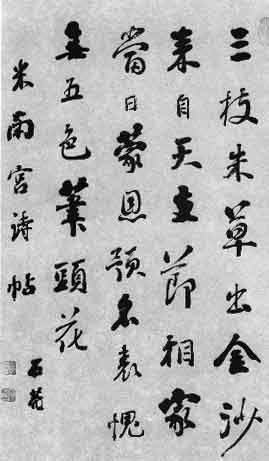 三枝朱草出金沙
來自天支節相家
當日蒙恩預名表愧
無五色筆頭花
米南宮詩帖
石菴